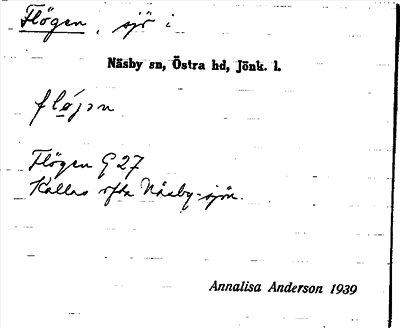 Flögen, sjö i
Näsby sn, Östra hd, Jönk. l.
fløjən
Flögen G 27
Kallas ofta Näsby-sjön.
Annalisa Anderson 1939